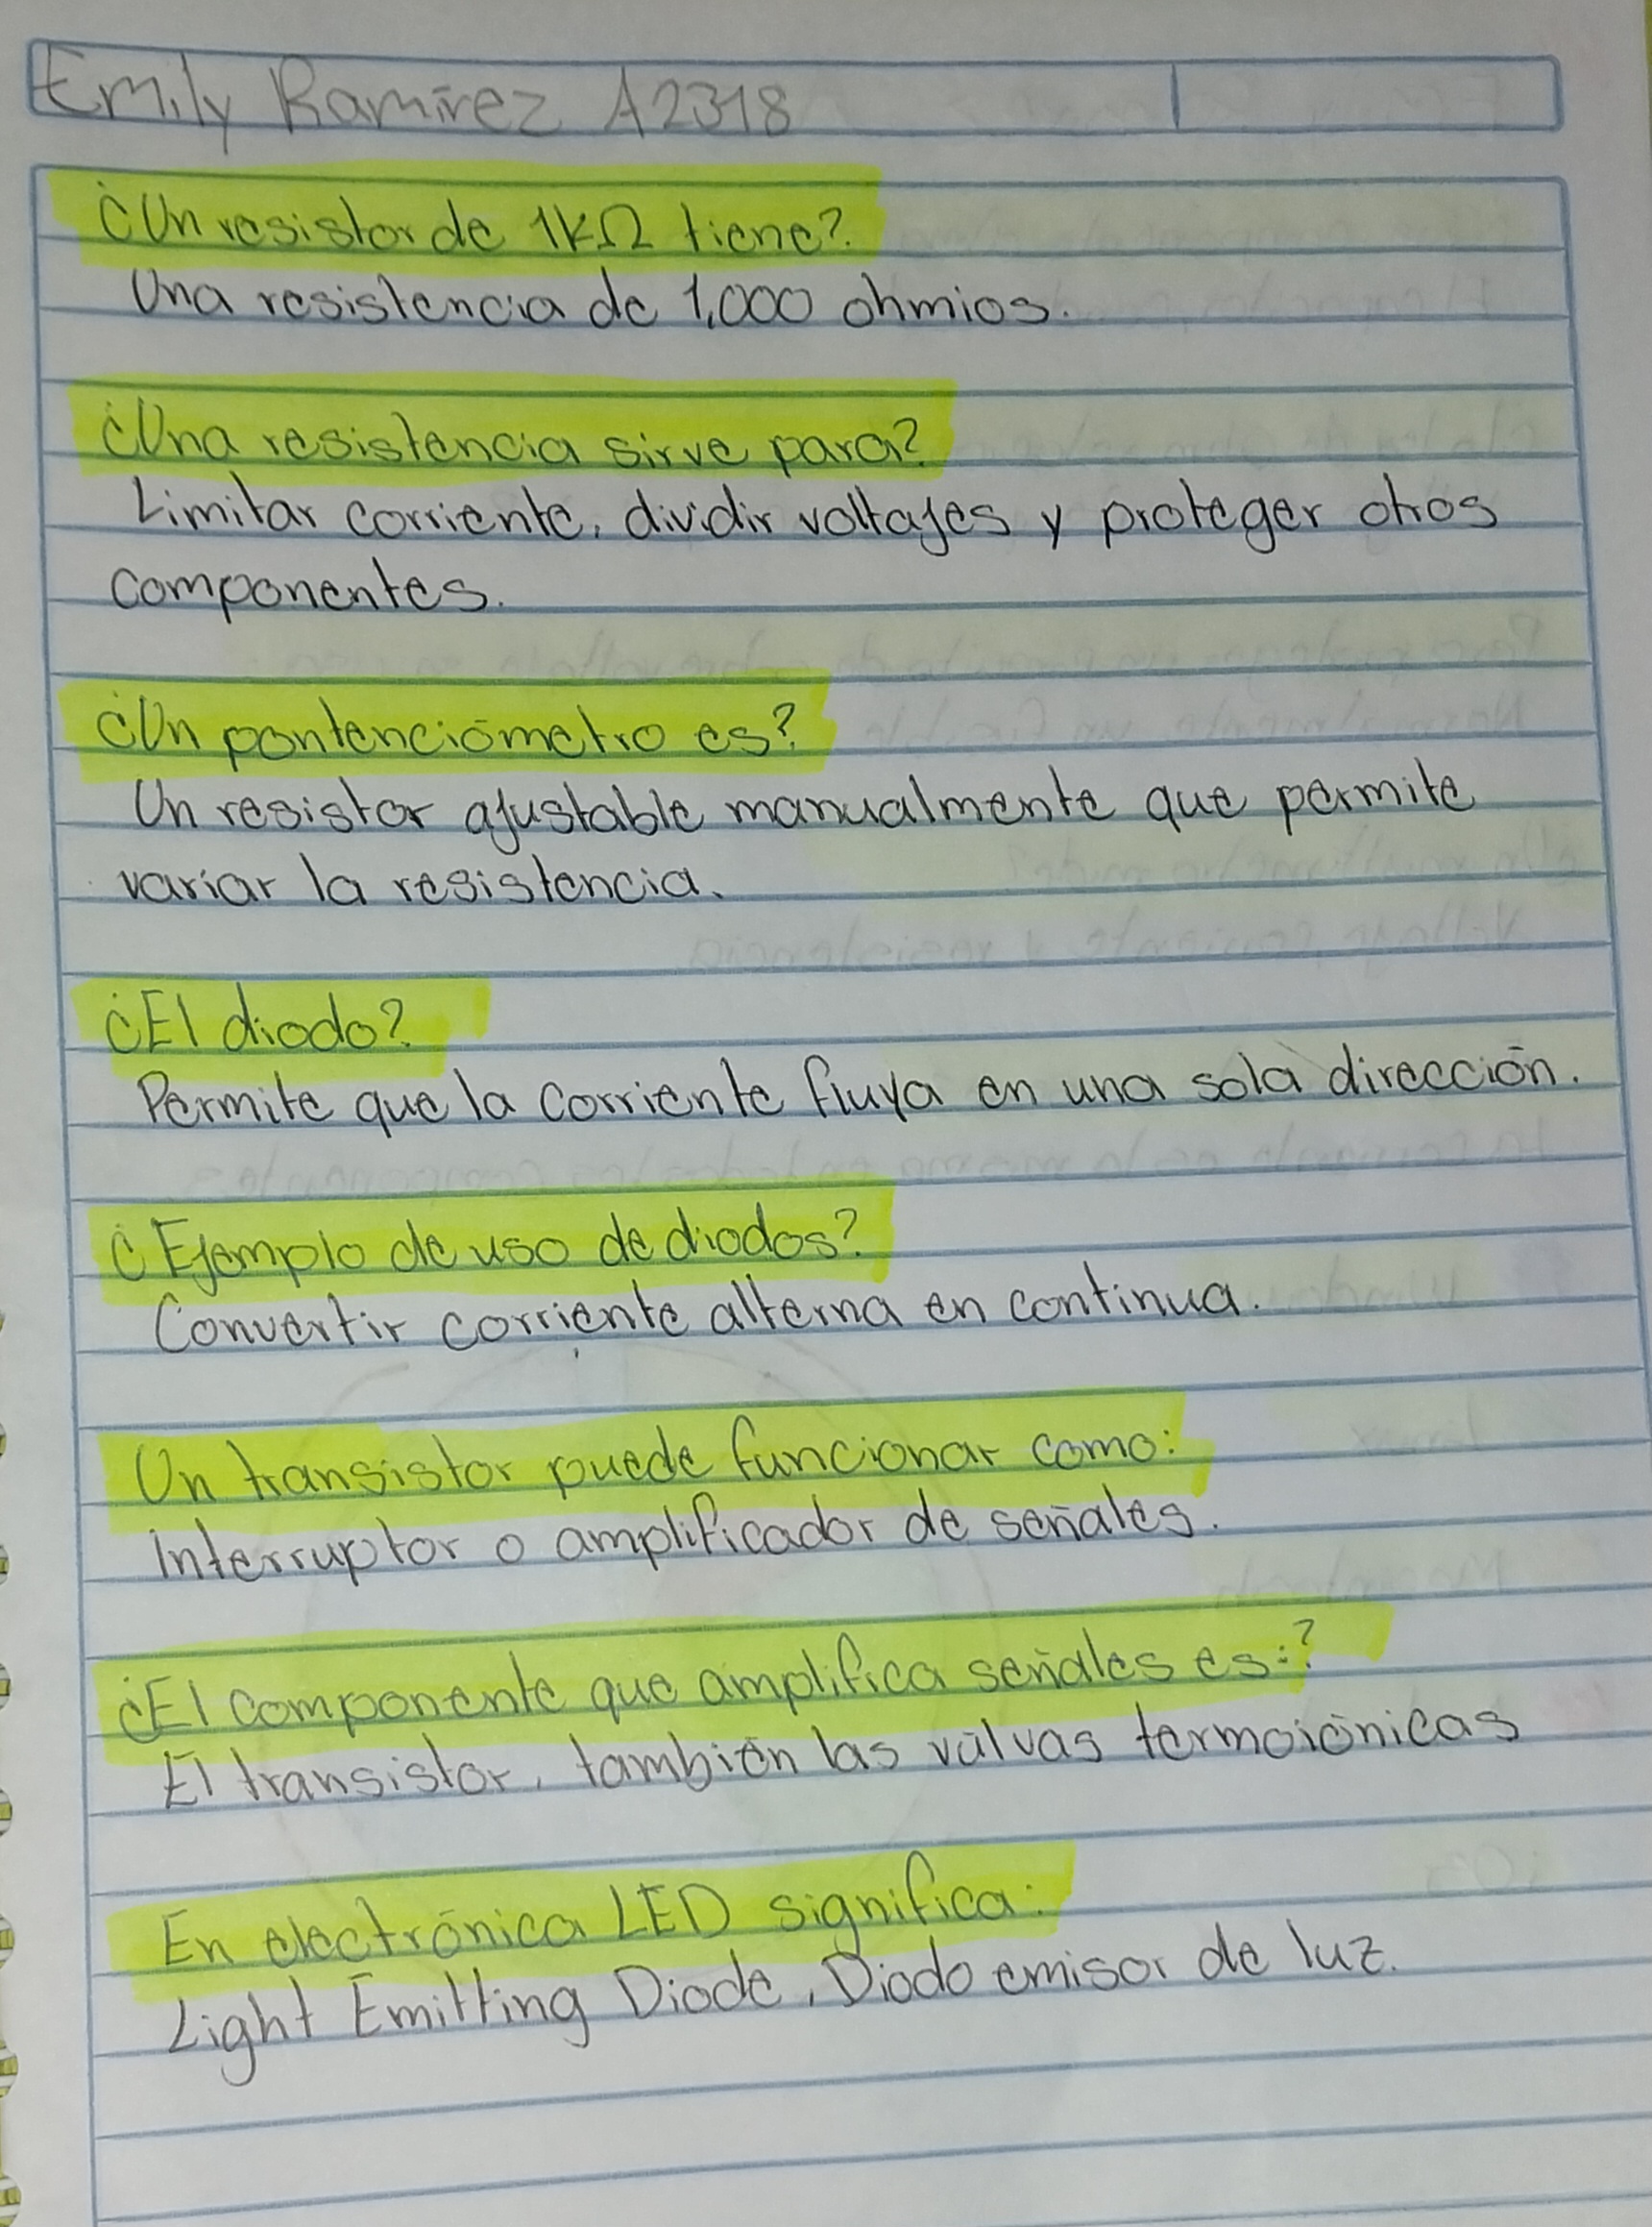 Emily Ramírez A2318
¿Un resistor de 1KΩ tiene?
Una resistencia de 1,000 ohmios.
¿Una resistencia sirve para?
Limitar corriente, dividir voltajes y proteger otros
componentes.
¿Un pontenciómetro es?
Un resistor ajustable manualmente que permite
variar la resistencia.
¿El diodo?
Permite que la corriente fluya en una sola dirección.
¿Ejemplo de uso de diodos?
Convertir corriente alterna en continua.
Un transistor puede funcionar como:
Interruptor o amplificador de señales.
¿El componente que amplifica señales es:?
El transistor, también las válvas termoiónicas
En electrónica LED significa:
Light Emitting Diode, Diodo emisor de luz.